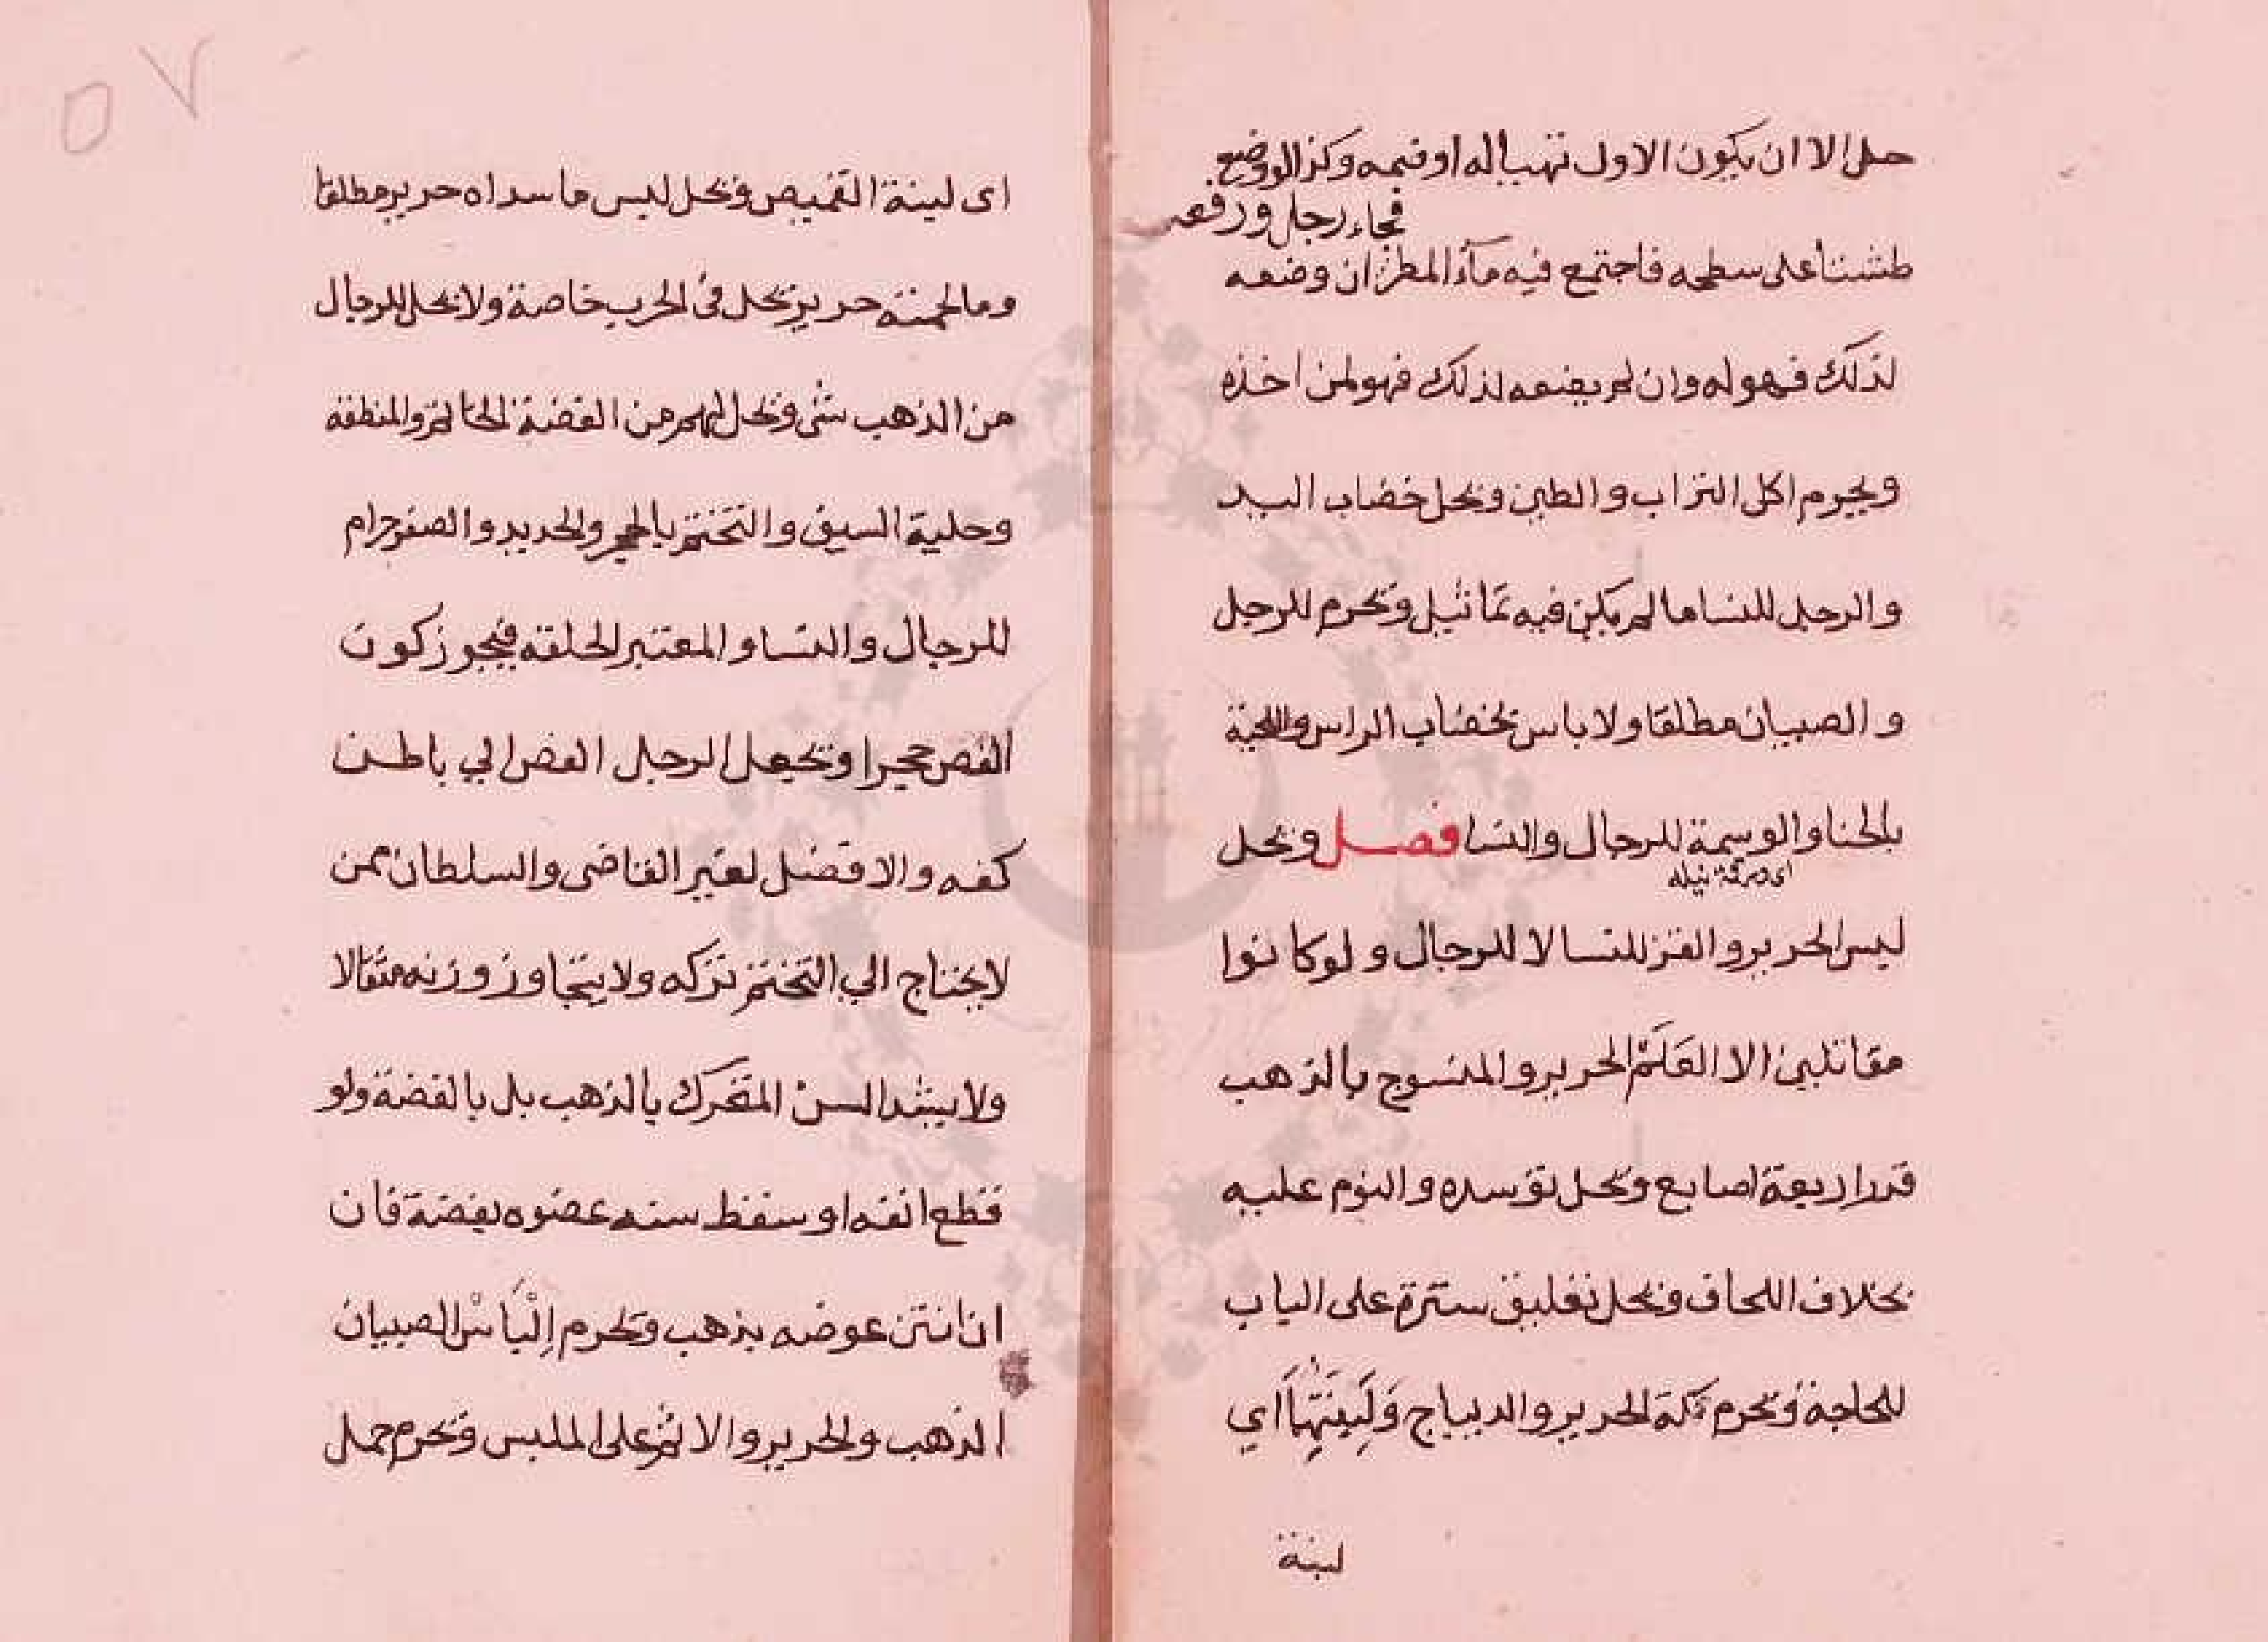 حل الا ان يكون الاول تهيا له او ضمه وكذا لو وضع
فجاء رجل ورفعه
طشتا على سطحه فاجتمع فيه ماء المطر ان وضعه
لذلك فهو له وان لم يضعه لذلك فهو لمن اخذه
ويحرم اكل التراب والطين ويحل خضاب اليد
والرجل للنسا ما لم يكن فيه تماثيل ويحرم للرجل
والصبيان مطلقا ولا باس بخضاب الراس واللحية
بالحنا والوسمة للرجال والنسا فصل ويحل
اى ورقة نيله
لبس الحرير والقز للنسا لا للرجال ولو كانوا
مقاتلين الا العلم الحرير والمنسوج بالذهب
قدر اربعة اصابع ويحل توسده والنوم عليه
بخلاف اللحاف ويحل تعليق سترة على الباب
للحاجة ويحرم تكة الحرير والديباج ولبنتها اي
لبنة
٥٧
اى لبنة القميص ويحل لبس ما سداه حرير مطلقا
وما لحمته حرير يحل في الحرب خاصة ولا يحل للرجال
من الذهب شى ويحل لهم من الفضة الخاتم والمنطقه
وحلية السيف والتختم بالحجر والحديد والصفر حرام
للرجال والنسا والمعتبر الحلقه فيجوز كون
الفص حجرا ويجعل الرجل الفص الي باطن
كفه والافضل لغير القاضى والسلطان ممن
لا يحتاج الي التختم تركه ولا يتجاوز وزنه مثقالا
ولا يشد السن المتحرك بالذهب بل بالفضة ولو
قطع انفه او سقط سنه عضوه بفضة فان
ان انتن عوضه بذهب ويحرم إلباس الصبيان
الذهب والحرير والاثم على الملبس ويحرم حمل